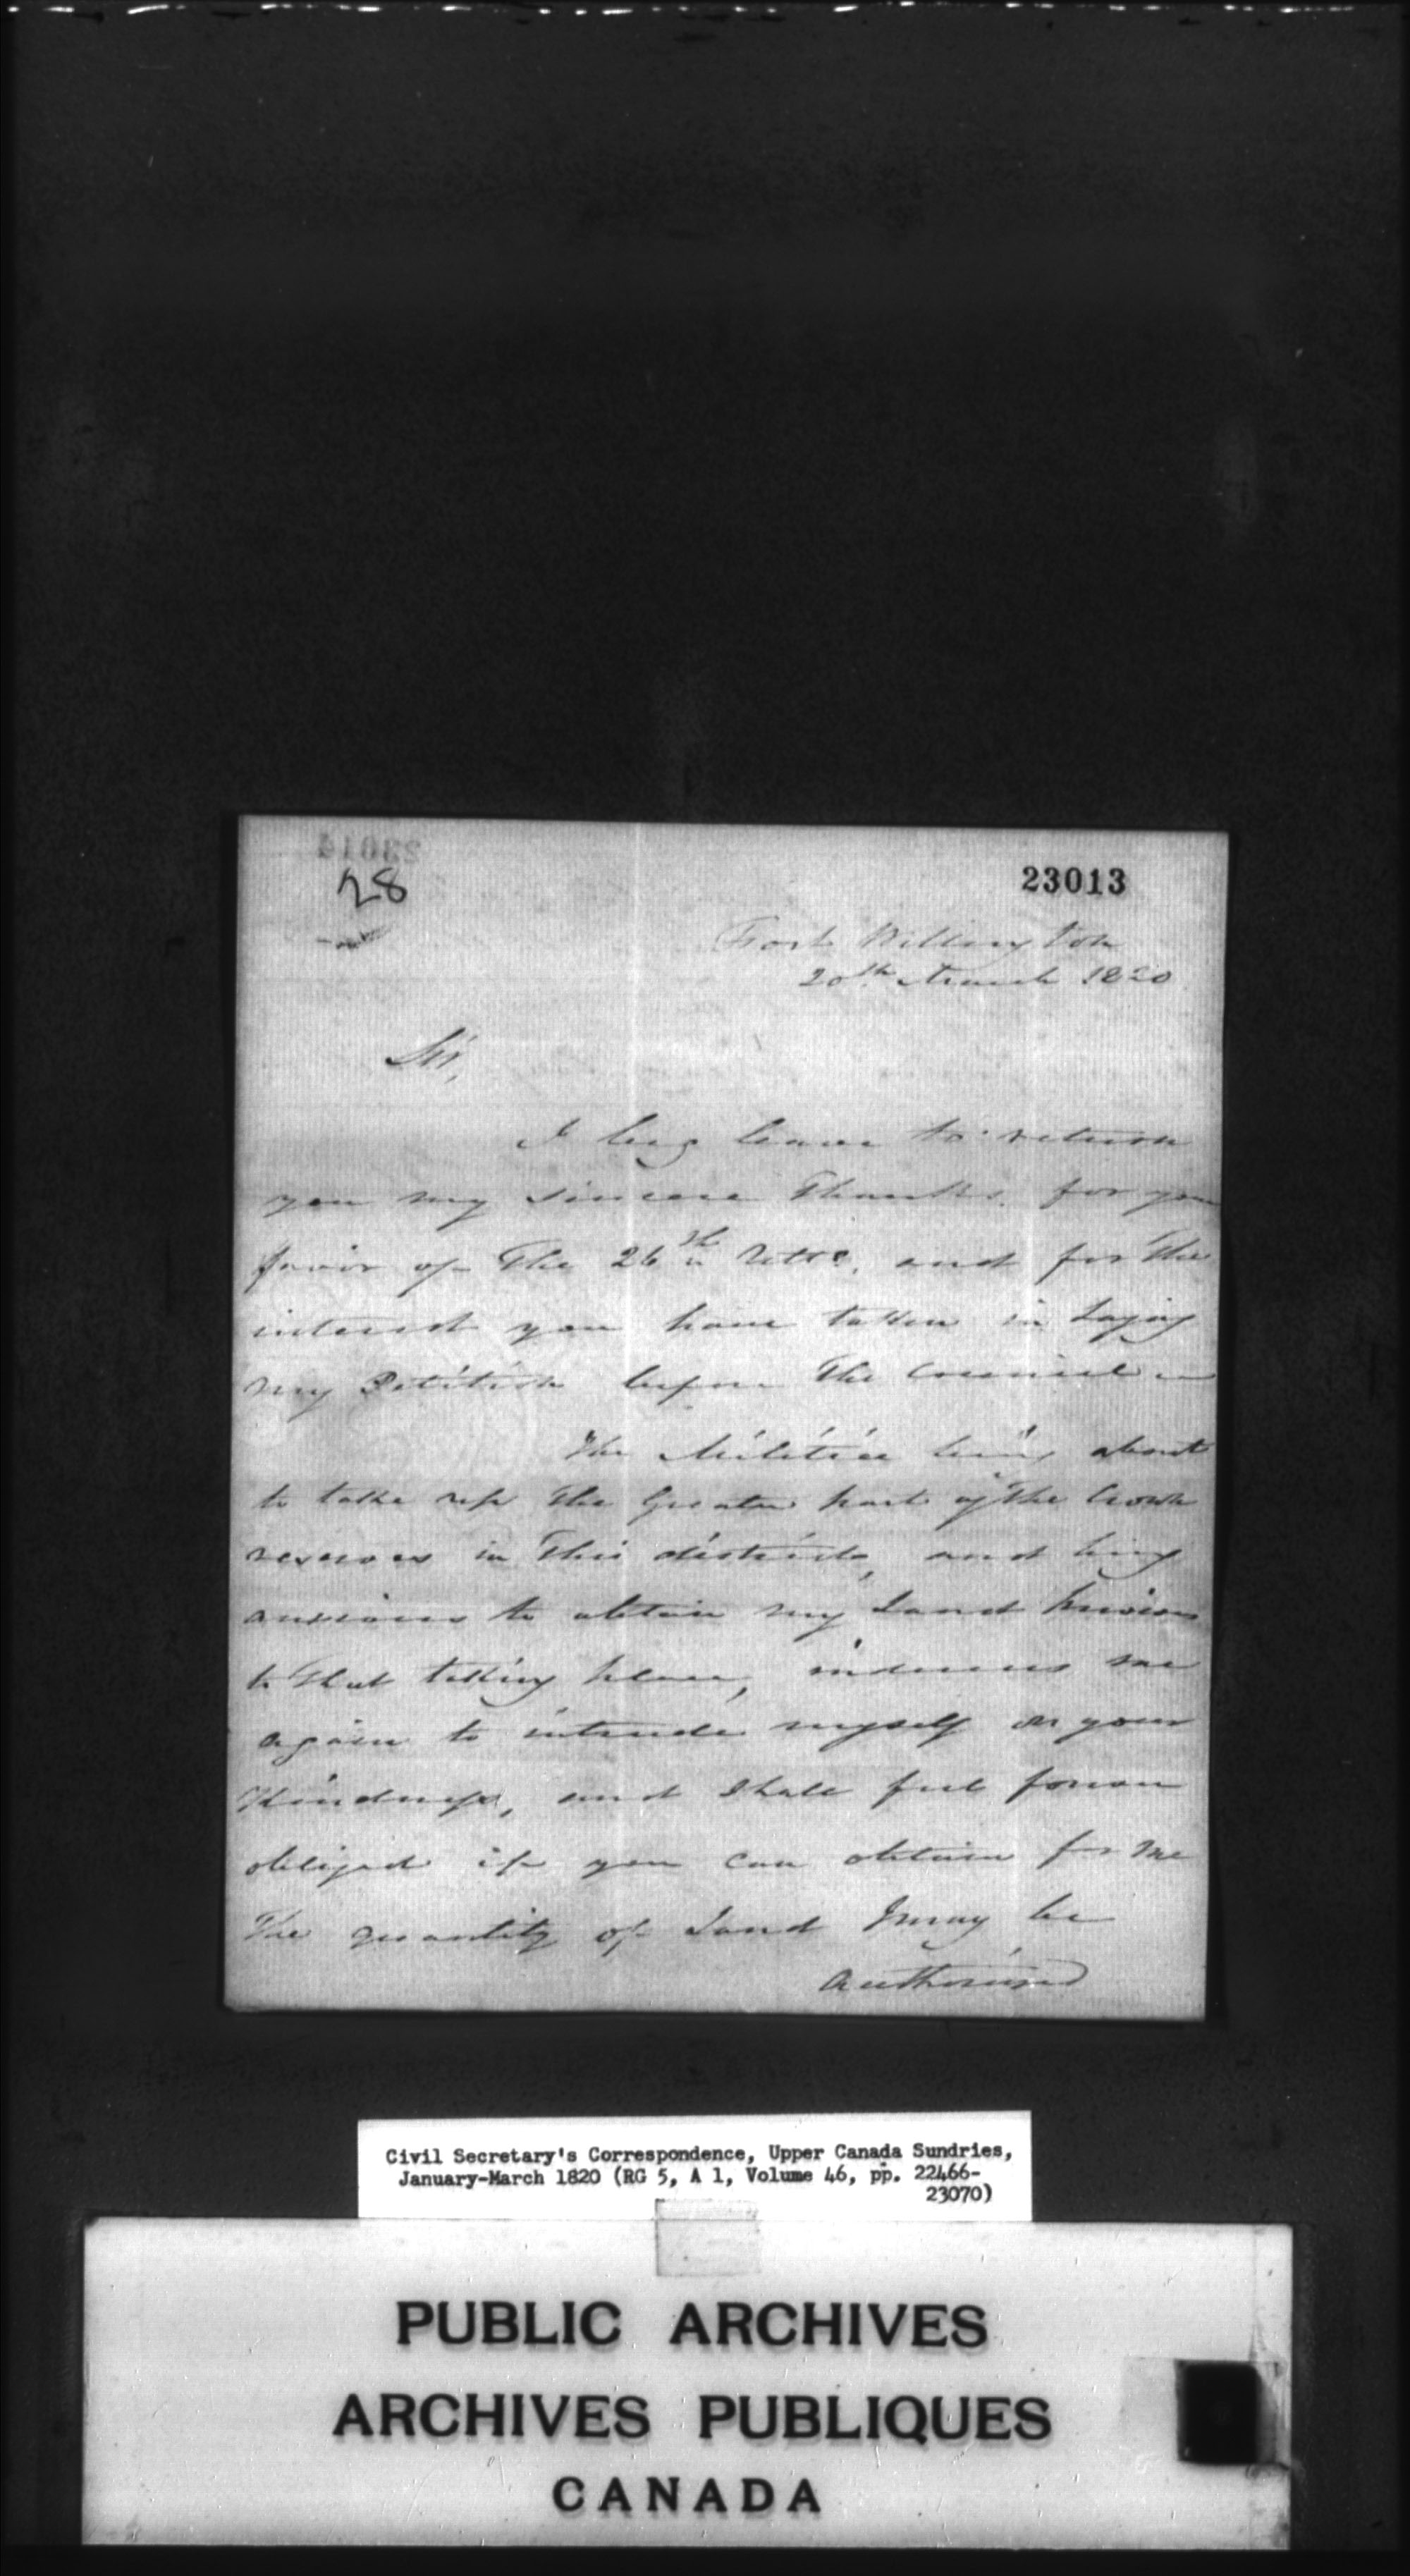 28
23013
Fort Wellington
20th March 1820
Sir,
I beg leave to return
you my sincere Thanks for your
favor of The 26th Ulto, and for The
interest you have taken in Laying
my Petition before The Council
The Militia being about
to take up The Greater part of The Crown
reserves in This district, and being
anxious to obtain my Land previous
to That taking place, induces me
again to intrude myself on your
Kindness, and Shall feel
obliged if you can obtain for me
The quantity of Land I may be
Authorised
Civil Secretary's Correspondence, Upper Canada Sundries,
January-March 1820 (RG 5, A 1, Volume 46, pp. 22466-
23070)
PUBLIC ARCHIVES
ARCHIVES PUBLIQUES
CANADA